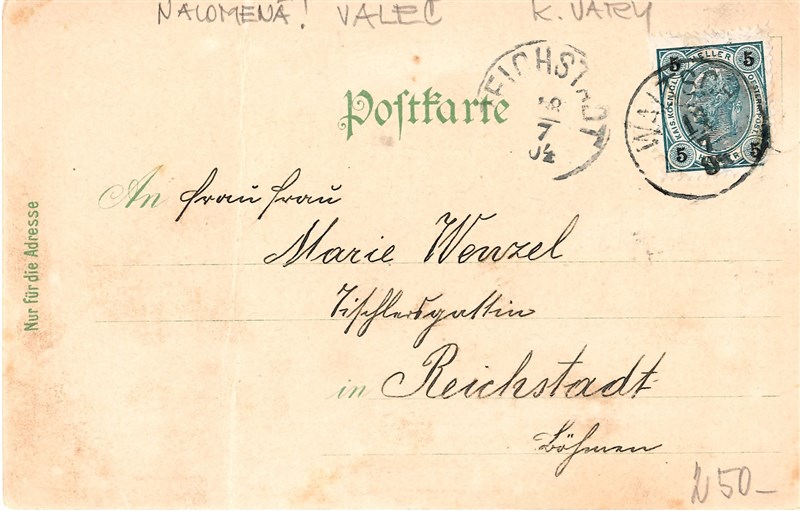 NALOMENÁ! VALEČ K. VARY
Postkarte
REICHSTADT
18
7
04
5 HELLER 5
KAIS. KOENIGL. OESTERR. POST
5 HELLER 5
WALTSCH
An Frau Frau
Marie Wenzel
Tischlersgattin
in Reichstadt
Böhmen
Nur für die Adresse
250-